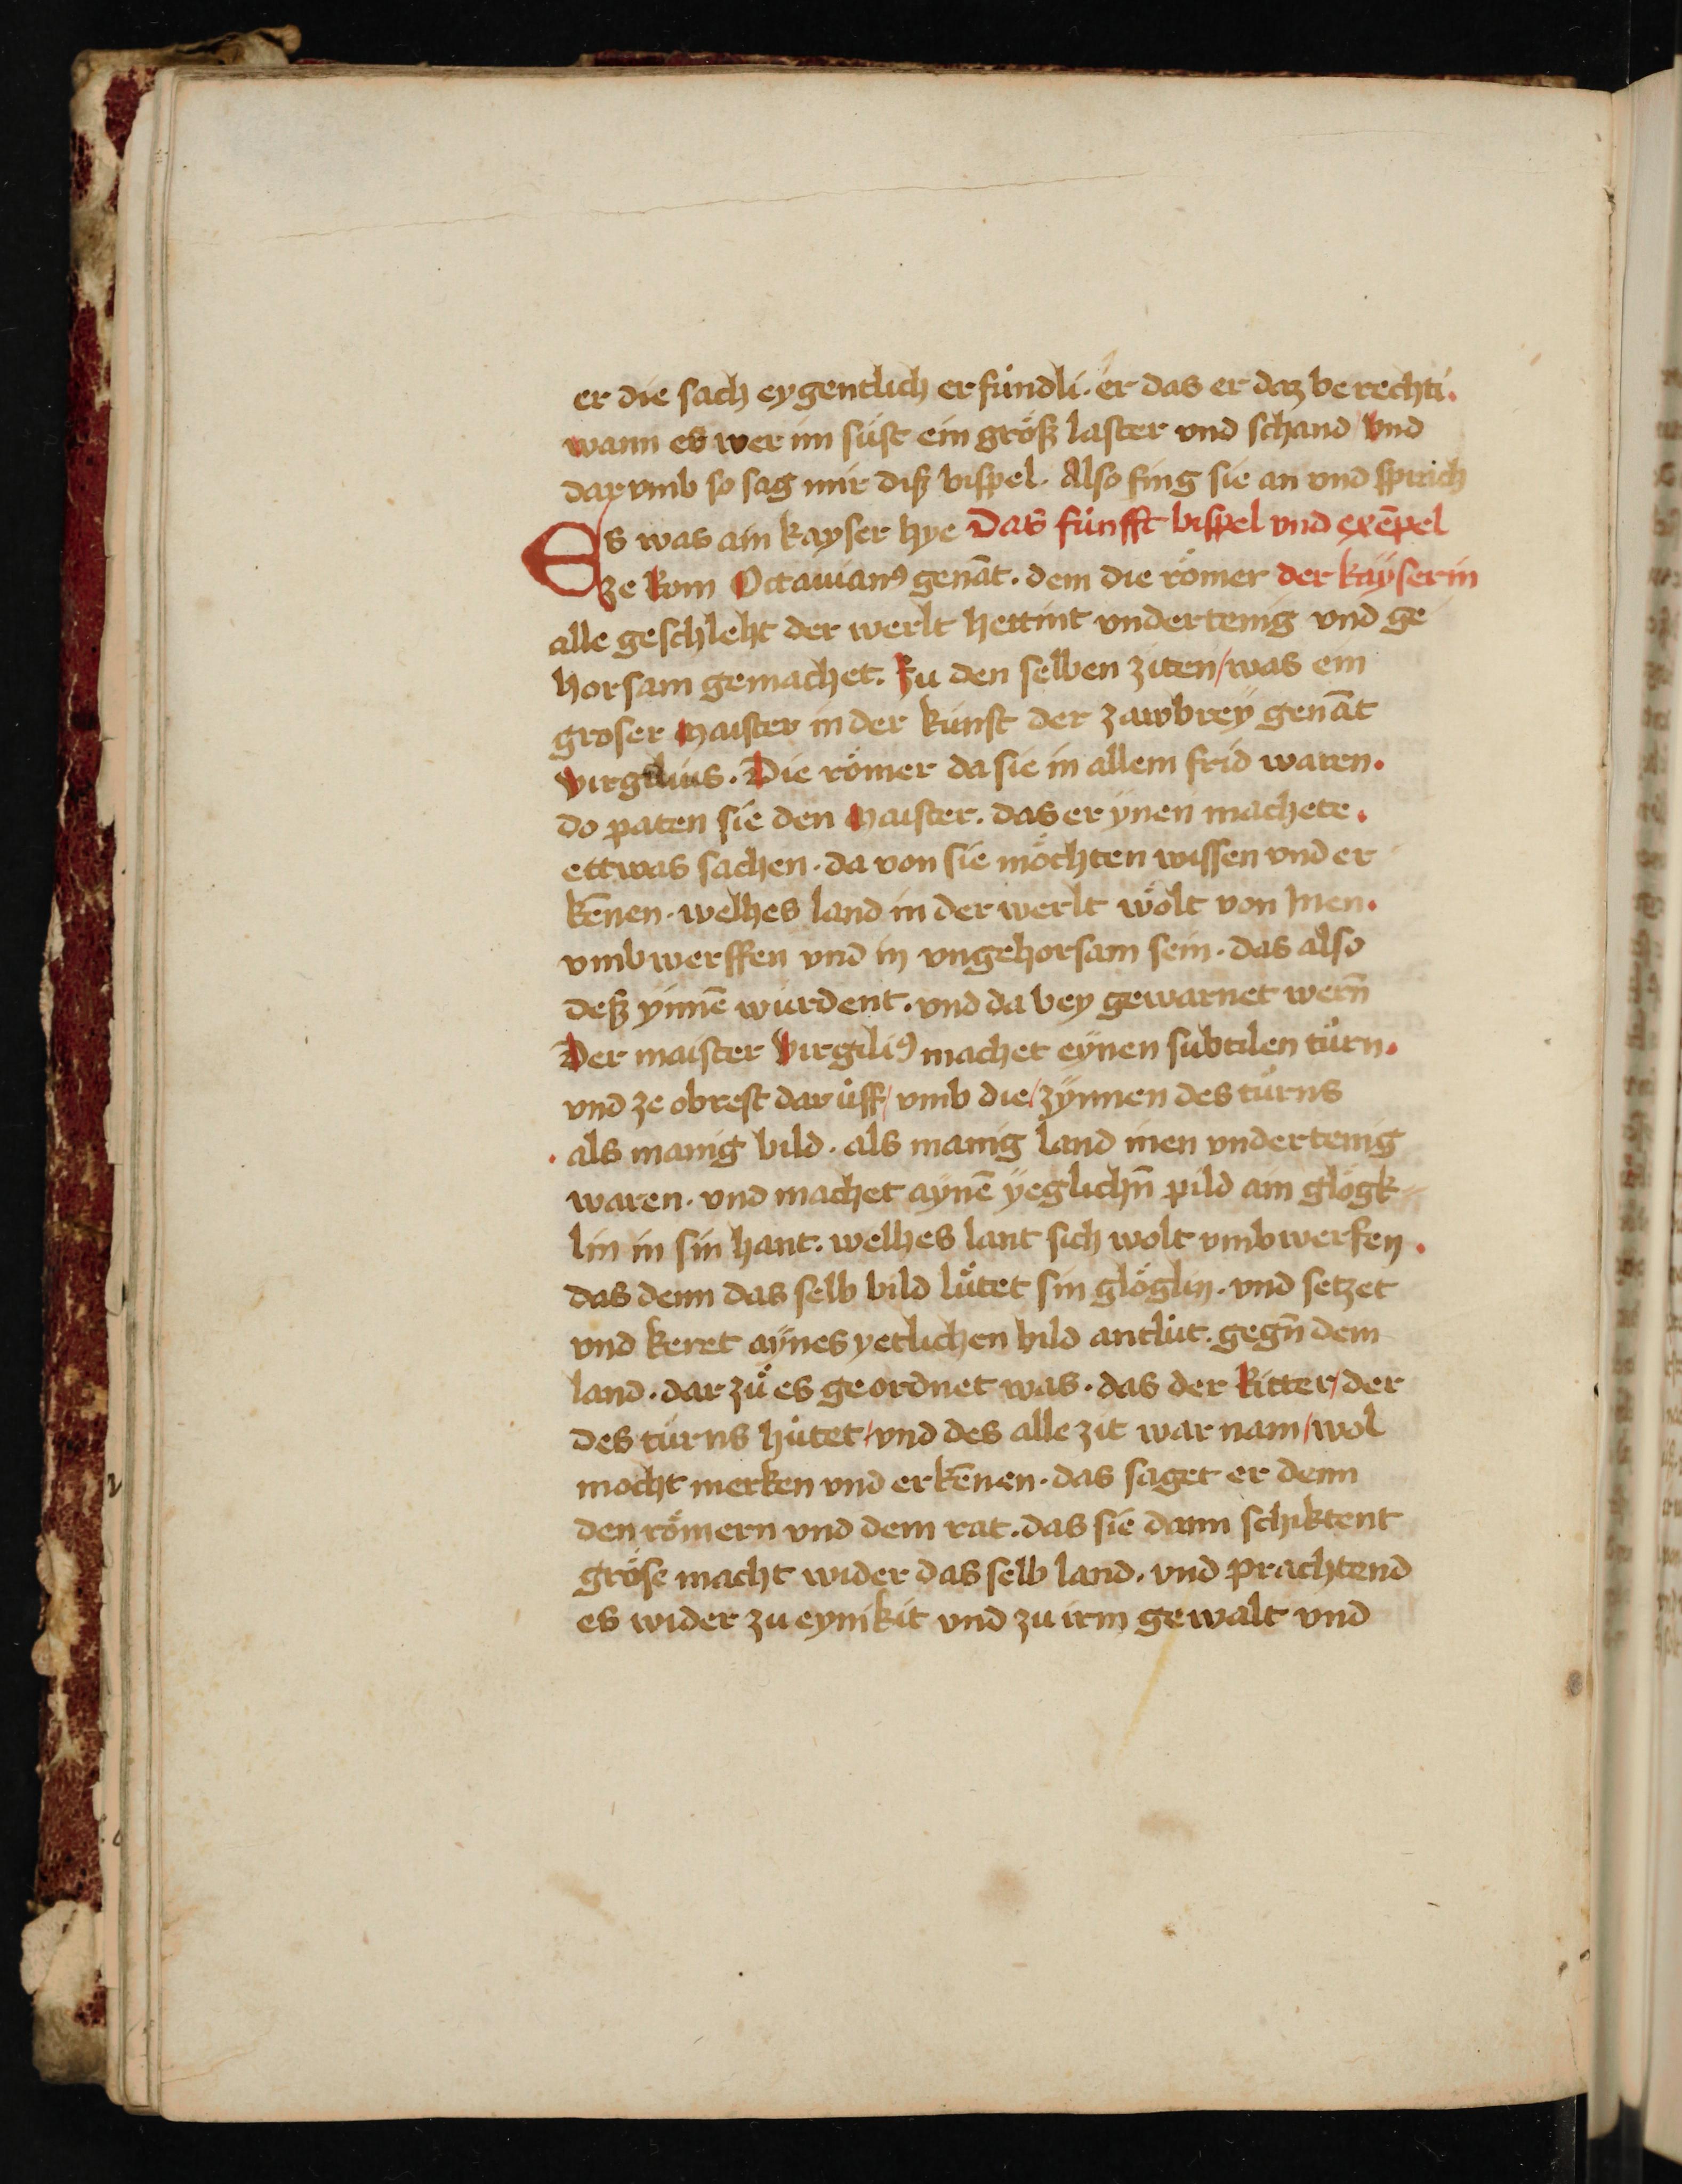 er die sach eygentlich erfündli · er das er daz berechti.
wann es wer im süst ein größ laster vnd schand Vnd
darvmb so sag mir diß bispel. Also fing sie an vnd sprich
Es was ain kayser hye Das fünfft bispel vnd exēpel
ze Rom Octauianꝰ genāt. dem die römer der kaÿserin
alle geschleht der werlt hettint vndertenig vnd ge
horsam gemachet. Zu den selben ziten/was ein
groser Maister in der kunst der zawbrey genāt
Virgilius. Die römer da sie in allem frid waren.
do paten sie den Maister. das er ÿnen machete.
ettwas sachen. da von sie möchten wissen vnd er
kēnen. welhes land in der werlt wölt von Inen.
vmbwerffen vnd in vngehorsam sein. das also
deß yinnē würdent. vnd da bey gewarnet wern̄
Der maister Virgiliꝰ machet eynen subtilen türn.
vnd ze obrest dar üff/vmb die/zÿnnen des türns
. als manig bild. als manig land inen vndertenig
waren. vnd machet aÿnē yeglichn̄ pild ain glögk
lin in sin hant. welhes lant sich wolt vmbwerfen.
das denn das selb bild lütet sin glöglin. vnd setzet
vnd keret aÿnes yetlichen bild antlüt. gegn̄ dem
land. dar zü es geordnet was. das der Ritter/der
des türns hütet/vnd des alle zit war nam/wol
mocht merken vnd erkēnen. das saget er denn
den römern vnd dem rat. das sie dann schiktent
gröse macht wider das selb land. vnd prachtend
es wider zu eynikit vnd zu irm gewalt vnd